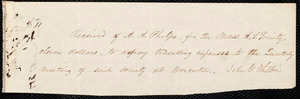 $11
Received of A. A. Phelps, for the Mass. A. S. Society,
eleven dollars, to defray travelling expenses to the Quarterly
meeting of said society at Worcester. John